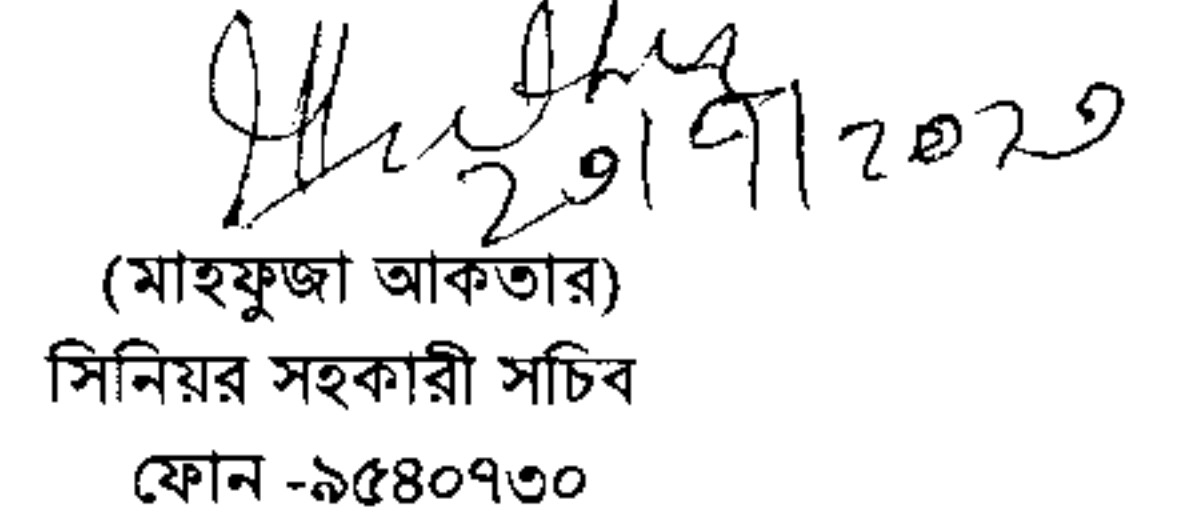 ২৩।৭।২০২৩
(মাহফুজা আকতার)
সিনিয়র সহকারী সচিব
ফোন -৯৫৪০৭৩০